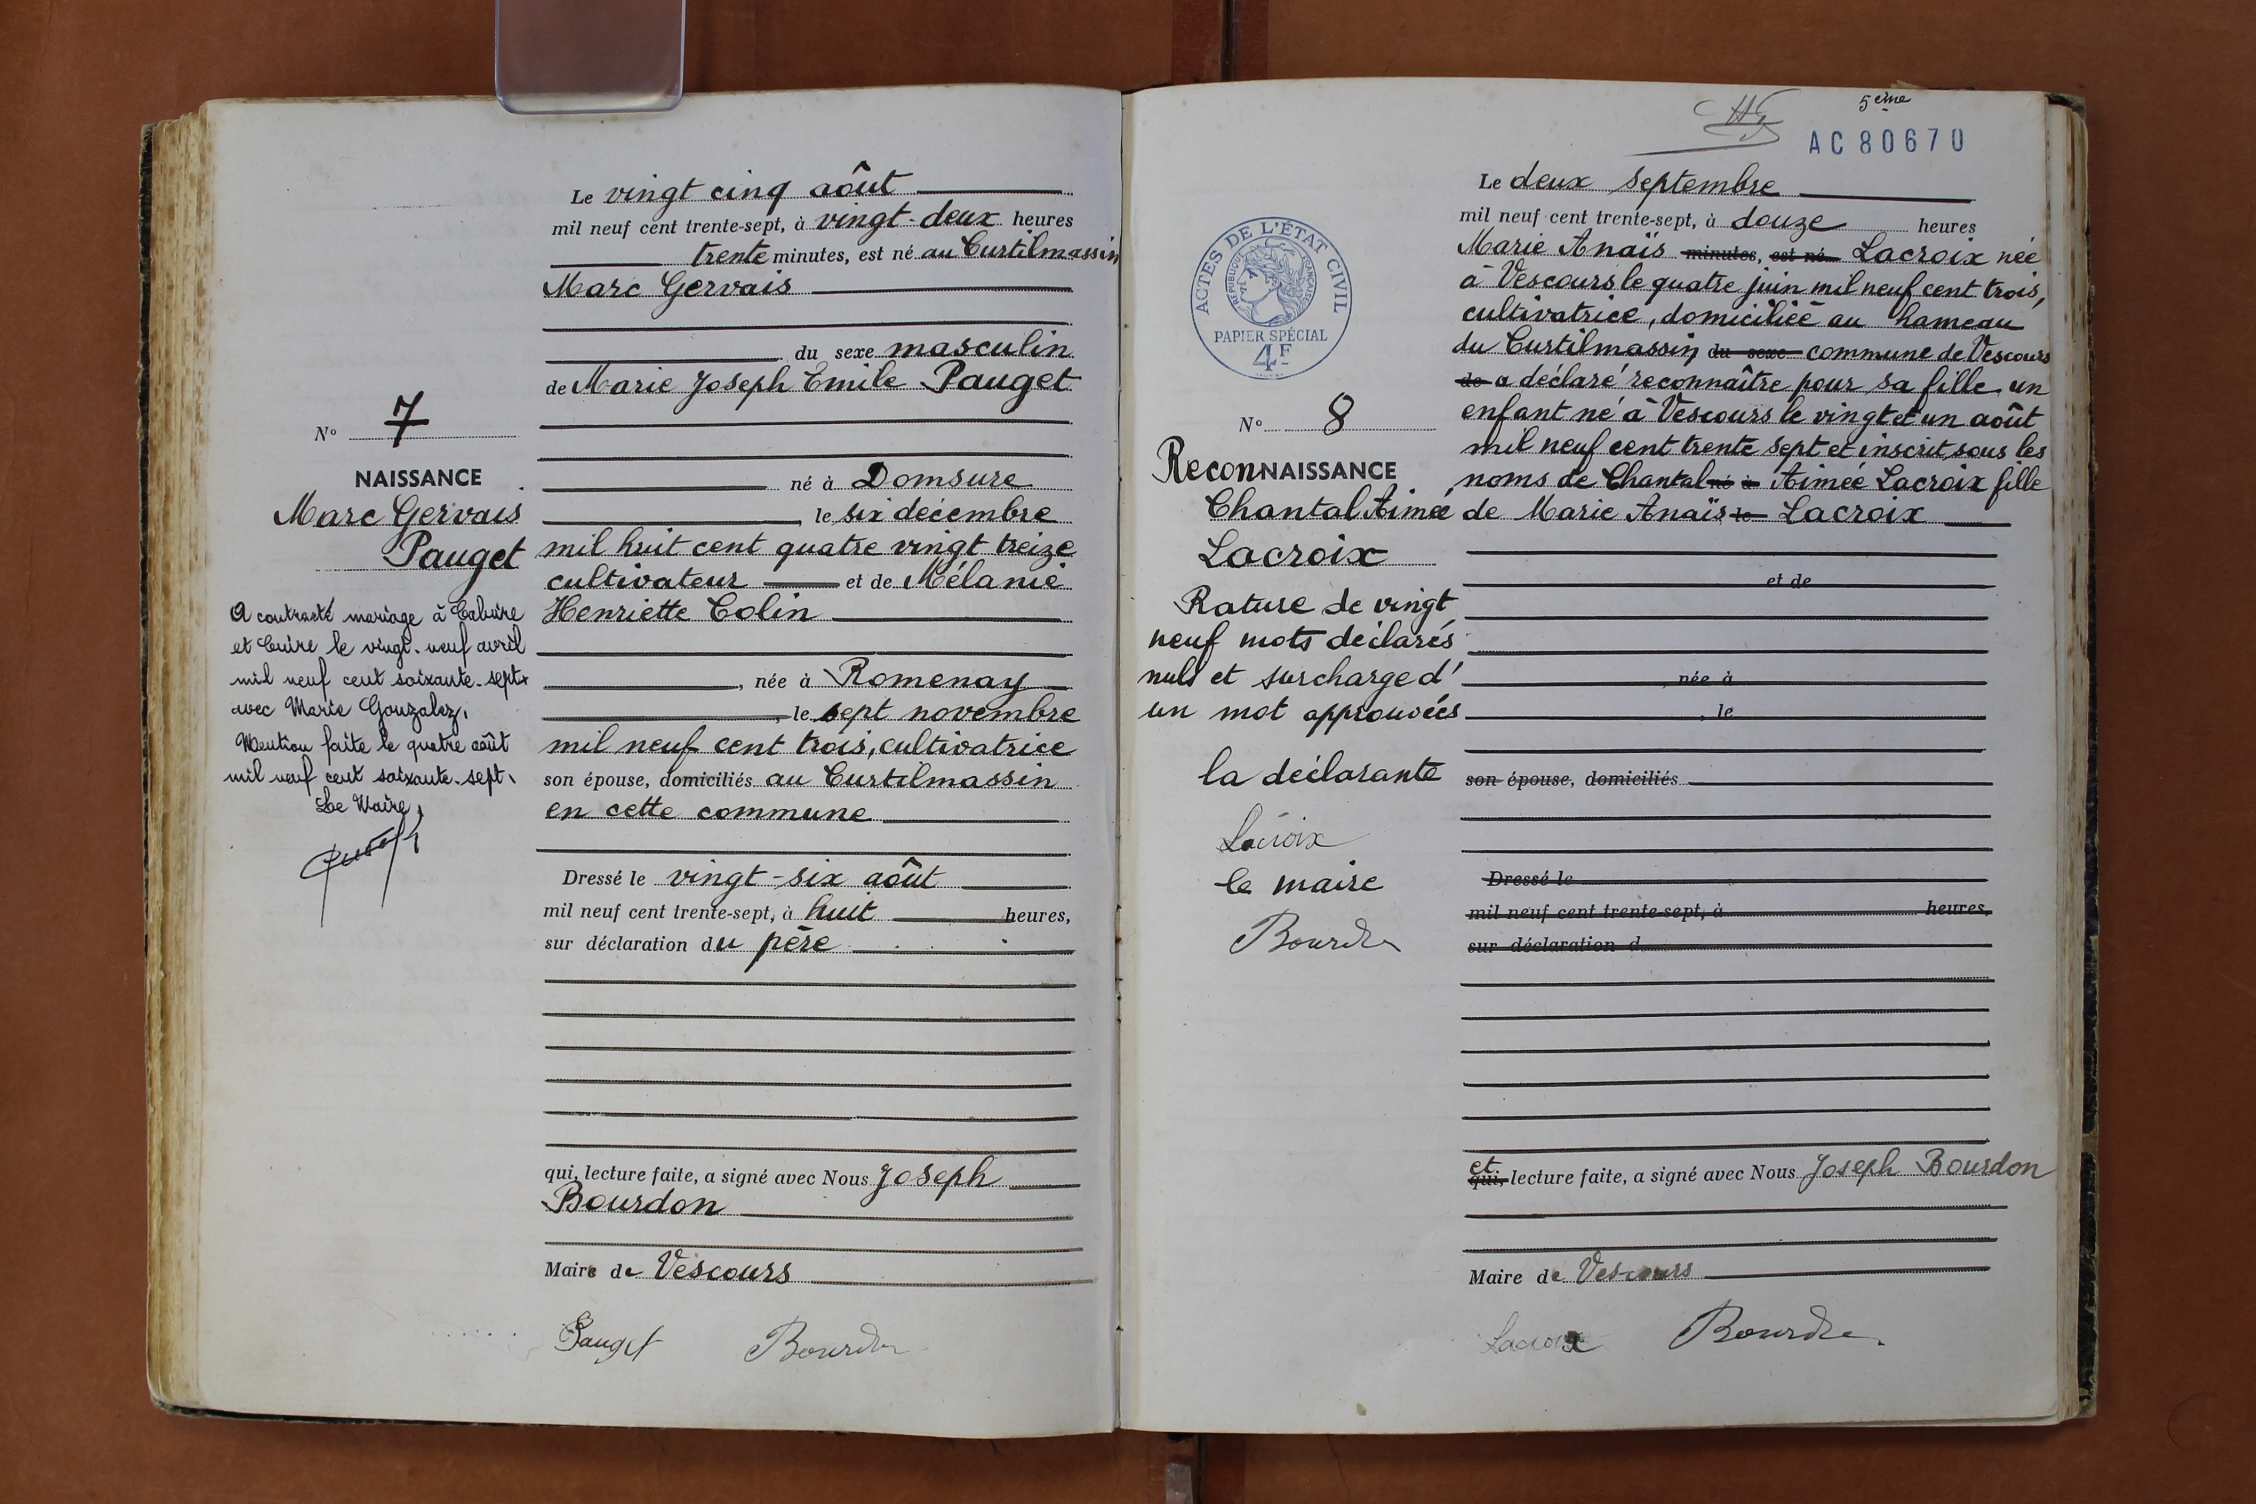 Le vingt cinq août
mil neuf cent trente-sept, à vingt-deux heures
trente minutes, est né au Curtilmassin
Marc Gervais
du sexe masculin
de Marie Joseph Emile Pauget
N° 7
NAISSANCE
Marc Gervais
Pauget
né à Domsure
le six décembre
mil huit cent quatre vingt treize
cultivateur et de Mélanie
Henriette Colin
née à Romenay
, le sept novembre
mil neuf cent trois, cultivatrice
son épouse, domiciliés au Curtilmassin
en cette commune
A contracté mariage à Caluire
et Cuire le vingt-neuf avril
mil neuf cent soixante-sept
avec Marie Gonzalez.
Mention faite le quatre août
mil neuf cent soixante-sept.
Le Maire,
Dressé le vingt-six août
mil neuf cent trente-sept, à huit heures,
sur déclaration du père
qui, lecture faite, a signé avec Nous Joseph
Bourdon
Maire de Vescours
Pauget Bourdon
5ème
AC80670
ACTES DE L'ÉTAT CIVIL
RÉPUBLIQUE FRANÇAISE
PAPIER SPÉCIAL
4F
Le deux septembre
mil neuf cent trente-sept, à douze heures
Marie Anaïs minutes, est né Lacroix née
à Vescours le quatre juin mil neuf cent trois,
cultivatrice, domiciliée au hameau
du Curtilmassin du sexe commune de Vescours
de a déclaré reconnaître pour sa fille un
enfant né à Vescours le vingt et un août
mil neuf cent trente sept et inscrit sous les
noms de Chantal né à Aimée Lacroix fille
de Marie Anaïs le Lacroix
et de
, née à
, le
son épouse, domiciliés
Dressé le
mil neuf cent trente-sept, à heures,
sur déclaration d
N° 8
ReconNAISSANCE
Chantal Aimée
Lacroix
Rature de vingt
neuf mots déclarés
nuls et surcharge d'
un mot approuvées
la déclarante
Lacroix
le maire
Bourdon
et
qui, lecture faite, a signé avec Nous Joseph Bourdon
Maire de Vescours
Lacroix Bourdon